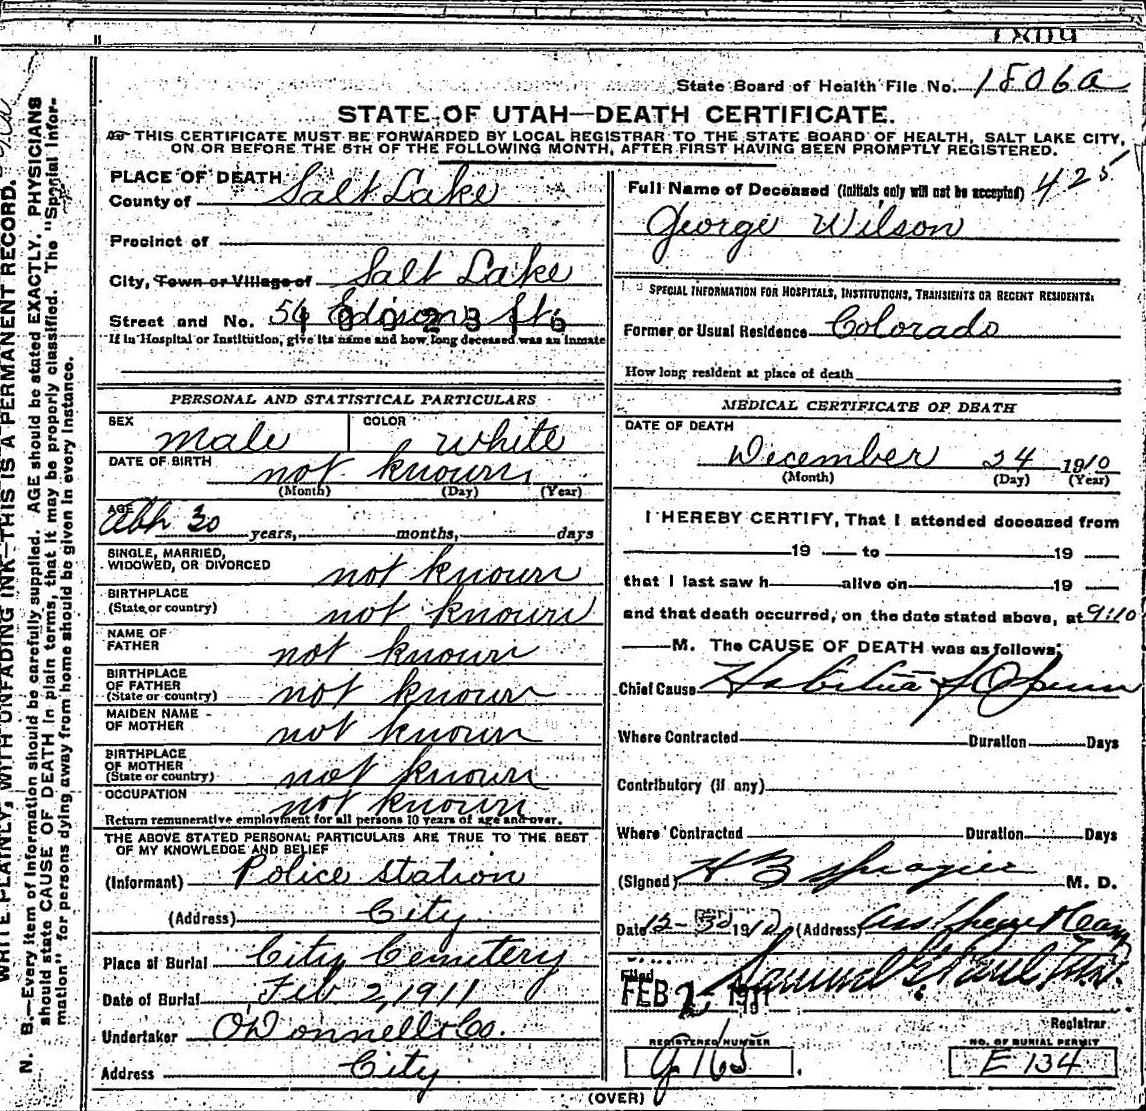 1809
State Board of Health File No. 1806a
STATE OF UTAH—DEATH CERTIFICATE.
THIS CERTIFICATE MUST BE FORWARDED BY LOCAL REGISTRAR TO THE STATE BOARD OF HEALTH, SALT LAKE CITY,
ON OR BEFORE THE 5TH OF THE FOLLOWING MONTH, AFTER FIRST HAVING BEEN PROMPTLY REGISTERED.
WRITE PLAINLY, WITH UNFADING INK—THIS IS A PERMANENT RECORD.
N. B.—Every item of information should be carefully supplied. AGE should be stated EXACTLY. PHYSICIANS
should state CAUSE OF DEATH in plain terms, that it may be properly classified. The "Special Infor-
mation" for persons dying away from home should be given in every instance.
PLACE OF DEATH
County of Salt Lake
Precinct of
City, Town or Village of Salt Lake
Street and No. 56 Edison St.
1002316
If in Hospital or Institution, give its name and how long deceased was an inmate
PERSONAL AND STATISTICAL PARTICULARS
SEX male COLOR white
DATE OF BIRTH not known
(Month) (Day) (Year)
AGE Abt 30 years, months, days
SINGLE, MARRIED,
WIDOWED, OR DIVORCED not known
BIRTHPLACE
(State or country) not known
NAME OF
FATHER not known
BIRTHPLACE
OF FATHER
(State or country) not known
MAIDEN NAME
OF MOTHER not known
BIRTHPLACE
OF MOTHER
(State or country) not known
OCCUPATION not known
Return remunerative employment for all persons 10 years of age and over.
THE ABOVE STATED PERSONAL PARTICULARS ARE TRUE TO THE BEST
OF MY KNOWLEDGE AND BELIEF
(Informant) Police station
(Address) City
Place of Burial City Cemetery
Date of Burial Feb 2, 1911
Undertaker O'Donnell & Co.
Address City
Full Name of Deceased (Initials only will not be accepted) 425
George Wilson
SPECIAL INFORMATION FOR HOSPITALS, INSTITUTIONS, TRANSIENTS OR RECENT RESIDENTS:
Former or Usual Residence Colorado
How long resident at place of death
MEDICAL CERTIFICATE OF DEATH
DATE OF DEATH
December 24 1910
(Month) (Day) (Year)
I HEREBY CERTIFY, That I attended deceased from
19 to 19
that I last saw h alive on 19
and that death occurred, on the date stated above, at 9:10
M. The CAUSE OF DEATH was as follows;
Chief Cause Habitue of Opium
Where Contracted Duration Days
Contributory (if any)
Where Contracted Duration Days
(Signed) M. D.
Date 12-30 1910 (Address)
Filed
FEB 1911
Registrar
REGISTERED NUMBER
G 165
NO. OF BURIAL PERMIT
E 134
(OVER)